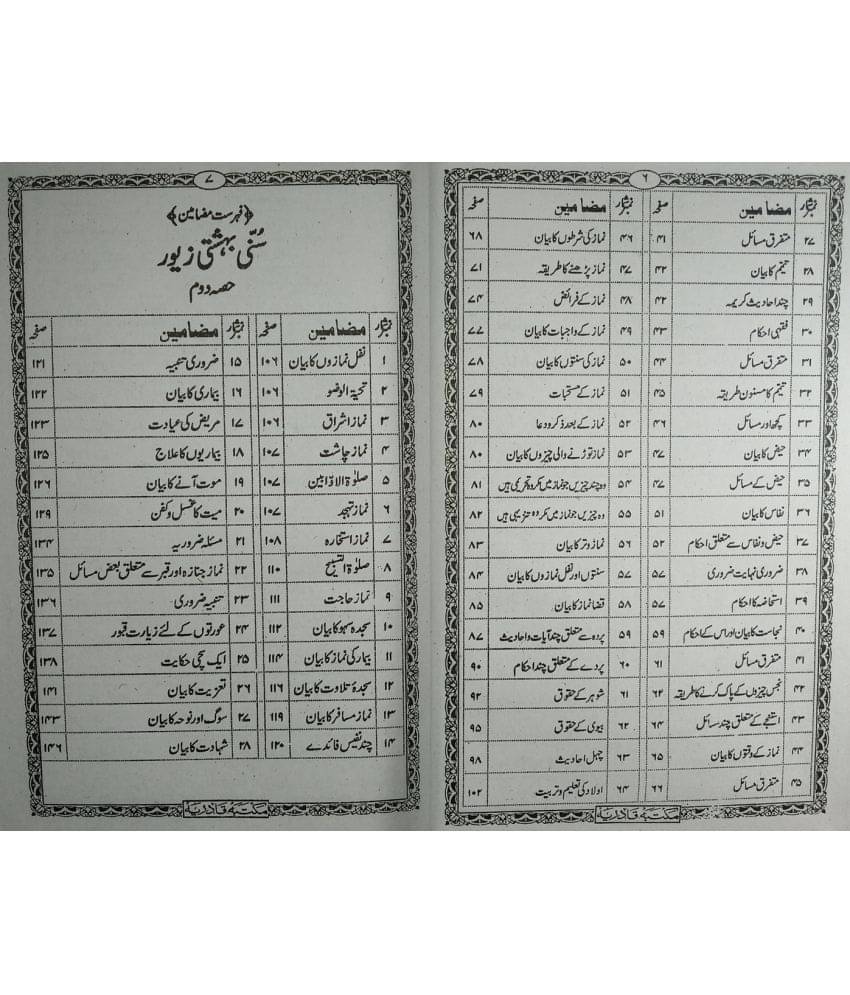 ۶
نمبر شمار مضامین صفحہ نمبر شمار مضامین صفحہ
۲۷ متفرق مسائل ۴۱ ۴۶ نماز کی شرطوں کا بیان ۶۸
۲۸ تیمم کا بیان ۴۲ ۴۷ نماز پڑھنے کا طریقہ ۷۱
۲۹ چند احادیث کریمہ ۴۲ ۴۸ نماز کے فرائض ۷۴
۳۰ فقہی احکام ۴۳ ۴۹ نماز کے واجبات کا بیان ۷۷
۳۱ متفرق مسائل ۴۴ ۵۰ نماز کی سنتوں کا بیان ۷۸
۳۲ تیمم کا مسنون طریقہ ۴۵ ۵۱ نماز کے مستحبات ۷۹
۳۳ کچھ اور مسائل ۴۶ ۵۲ نماز کے بعد ذکر و دعا ۸۰
۳۴ حیض کا بیان ۴۷ ۵۳ نماز توڑنے والی چیزوں کا بیان ۸۰
۳۵ حیض کے مسائل ۴۷ ۵۴ وہ چند چیزیں جو نماز میں مکروہ تحریمی ہیں ۸۱
۳۶ نفاس کا بیان ۵۱ ۵۵ وہ چیزیں جو نماز میں مکروہ تنزیہی ہیں ۸۲
۳۷ حیض و نفاس سے متعلق احکام ۵۲ ۵۶ نماز وتر کا بیان ۸۳
۳۸ ضروری نہایت ضروری ۵۷ ۵۷ سنتوں اور نفل نمازوں کا بیان ۸۴
۳۹ استحاضہ کا احکام ۵۷ ۵۸ قضا نماز کا بیان ۸۵
۴۰ نجاست کا بیان اور اس کے احکام ۵۹ ۵۹ پردہ سے متعلق چند آیات و احادیث ۸۷
۴۱ متفرق مسائل ۶۱ ۶۰ پردے کے متعلق چند احکام ۹۰
۴۲ نجس چیزوں کے پاک کرنے کا طریقہ ۶۲ ۶۱ شوہر کے حقوق ۹۲
۴۳ استنجے کے متعلق چند مسائل ۶۴ ۶۲ بیوی کے حقوق ۹۵
۴۴ نماز کے وقتوں کا بیان ۶۵ ۶۳ چہل احادیث ۹۸
۴۵ متفرق مسائل ۶۶ ۶۴ اولاد کی تعلیم و تربیت ۱۰۲
مکتبہ قادریہ
۷
﴿فہرست مضامین﴾
سُنّی بہشتی زیور
حصہ دوم
نمبر شمار مضامین صفحہ نمبر شمار مضامین صفحہ
۱ نفل نمازوں کا بیان ۱۰۶ ۱۵ ضروری تنبیہ ۱۲۱
۲ تحیۃ الوضو ۱۰۶ ۱۶ بیماری کا بیان ۱۲۲
۳ نماز اشراق ۱۰۶ ۱۷ مریض کی عیادت ۱۲۳
۴ نماز چاشت ۱۰۷ ۱۸ بیماریوں کا علاج ۱۲۵
۵ صلوٰۃ الاوّابین ۱۰۷ ۱۹ موت آنے کا بیان ۱۲۶
۶ نماز تہجد ۱۰۷ ۲۰ میت کا غسل و کفن ۱۲۹
۷ نماز استخارہ ۱۰۸ ۲۱ مسئلہ ضروریہ ۱۳۴
۸ صلوٰۃ التسبیح ۱۱۰ ۲۲ نماز جنازہ اور قبر سے متعلق بعض مسائل ۱۳۵
۹ نماز حاجت ۱۱۱ ۲۳ تنبیہ ضروری ۱۳۶
۱۰ سجدہ سہو کا بیان ۱۱۲ ۲۴ عورتوں کے لئے زیارت قبور ۱۳۷
۱۱ بیمار کی نماز کا بیان ۱۱۴ ۲۵ ایک سچی حکایت ۱۳۸
۱۲ سجدۂ تلاوت کا بیان ۱۱۶ ۲۶ تعزیت کا بیان ۱۴۱
۱۳ نماز مسافر کا بیان ۱۱۹ ۲۷ سوگ اور نوحہ کا بیان ۱۴۳
۱۴ چند نفیس فائدے ۱۲۰ ۲۸ شہادت کا بیان ۱۴۶
مکتبہ قادریہ